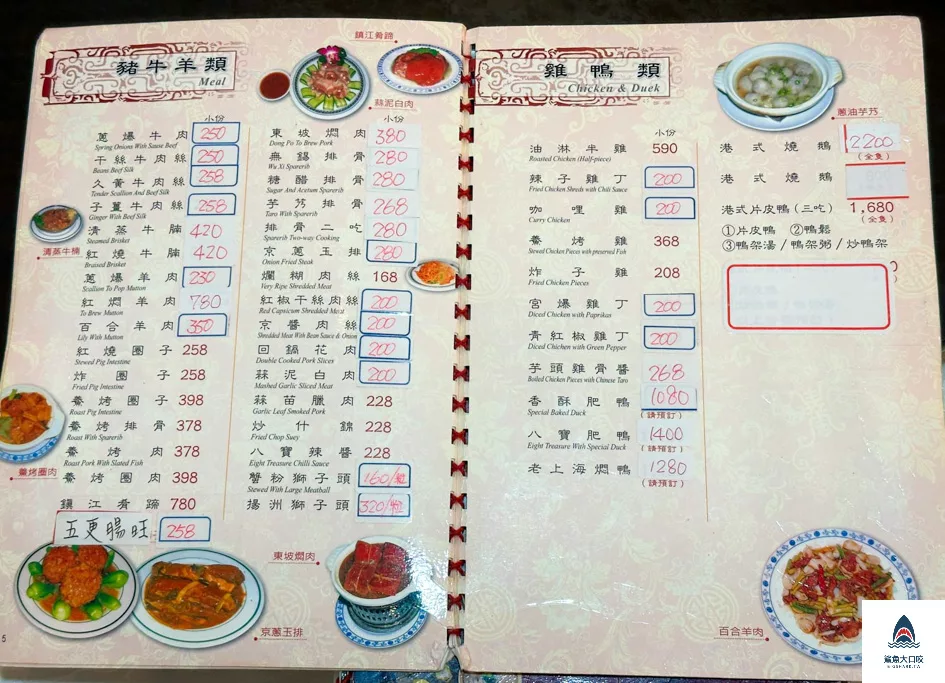 豬牛羊類
Meal
小份
蔥爆牛肉 250
Spring Onions With Sause Beef
干絲牛肉絲 250
Beans Beef Silk
久黃牛肉絲 258
Tender Scallion And Beef Silk
子薑牛肉絲 258
Ginger With Beef Silk
清蒸牛腩 420
Steamed Brisket
紅燒牛腩 420
Braised Brisket
蔥爆羊肉 230
Scallium To Pop Mutton
紅燜羊肉 780
To Brew Mutton
百合羊肉 350
Lily With Mutton
紅燒圈子 258
Stewed Pig Intestine
炸圈子 258
Fried Pig Intestine
鯗烤圈子 398
Roast Pig Intestine
鯗烤排骨 378
Roast With Sparerib
鯗烤肉 378
Roast Pork With Slated Fish
鯗烤圈肉 398
鎮江肴蹄 780
五更腸旺 258
清蒸牛楠
鯗烤圈肉
鎮江肴蹄
蒜泥白肉
小份
東坡燜肉 380
Dong Po To Brew Pork
無錫排骨 280
Wu Xi Sparerib
糖醋排骨 280
Sugar And Acetum Sparerib
芋艿排骨 268
Taro With Sparerib
排骨二吃 280
Sparerib Two-way Cooking
京蔥玉排 280
Onion Fried Steak
爛糊肉絲 168
Very Ripe Shredded Meat
紅椒干絲肉絲 200
Red Capsicum Shredded Meat
京醬肉絲 200
Shredded Meat With Bean Sauce & Onion
回鍋花肉 200
Double Cooked Pork Slices
蒜泥白肉 200
Mashed Garlic Sliced Meat
蒜苗臘肉 228
Garlic Leaf Smoked Pork
炒什錦 228
Fried Chop Suey
八寶辣醬 228
Eight Treasure Chilli Sauce
蟹粉獅子頭 160/粒
Stewed With Large Meatball
揚洲獅子頭 320/粒
東坡燜肉
京蔥玉排
5
雞鴨類
Chicken & Duek
小份
油淋半雞 590
Roasted Chicken (Half-piece)
辣子雞丁 200
Fried Chicken Shreds with Chili Sauce
咖哩雞 200
Curry Chicken
鯗烤雞 368
Stewed Chicken Pieces with preserved Fish
炸子雞 208
Fried Chicken Pieces
宮爆雞丁 200
Diced Chicken with Paprikas
青紅椒雞丁 200
Diced Chicken with Green Pepper
芋頭雞骨醬 268
Boiled Chicken Pieces with Chinese Taro
香酥肥鴨 1080
Special Baked Duck
(請預訂)
八寶肥鴨 1400
Eight Treasure With Special Duck
(請預訂)
老上海燜鴨 1280
(請預訂)
蔥油芋艿
港式燒鵝 2200
(全隻)
港式燒鵝
港式片皮鴨(三吃) 1,680
(全隻)
①片皮鴨 ②鴨鬆
③鴨架湯/鴨架粥/炒鴨架
百合羊肉
鯊魚大口咬
BIGSHARK.TW